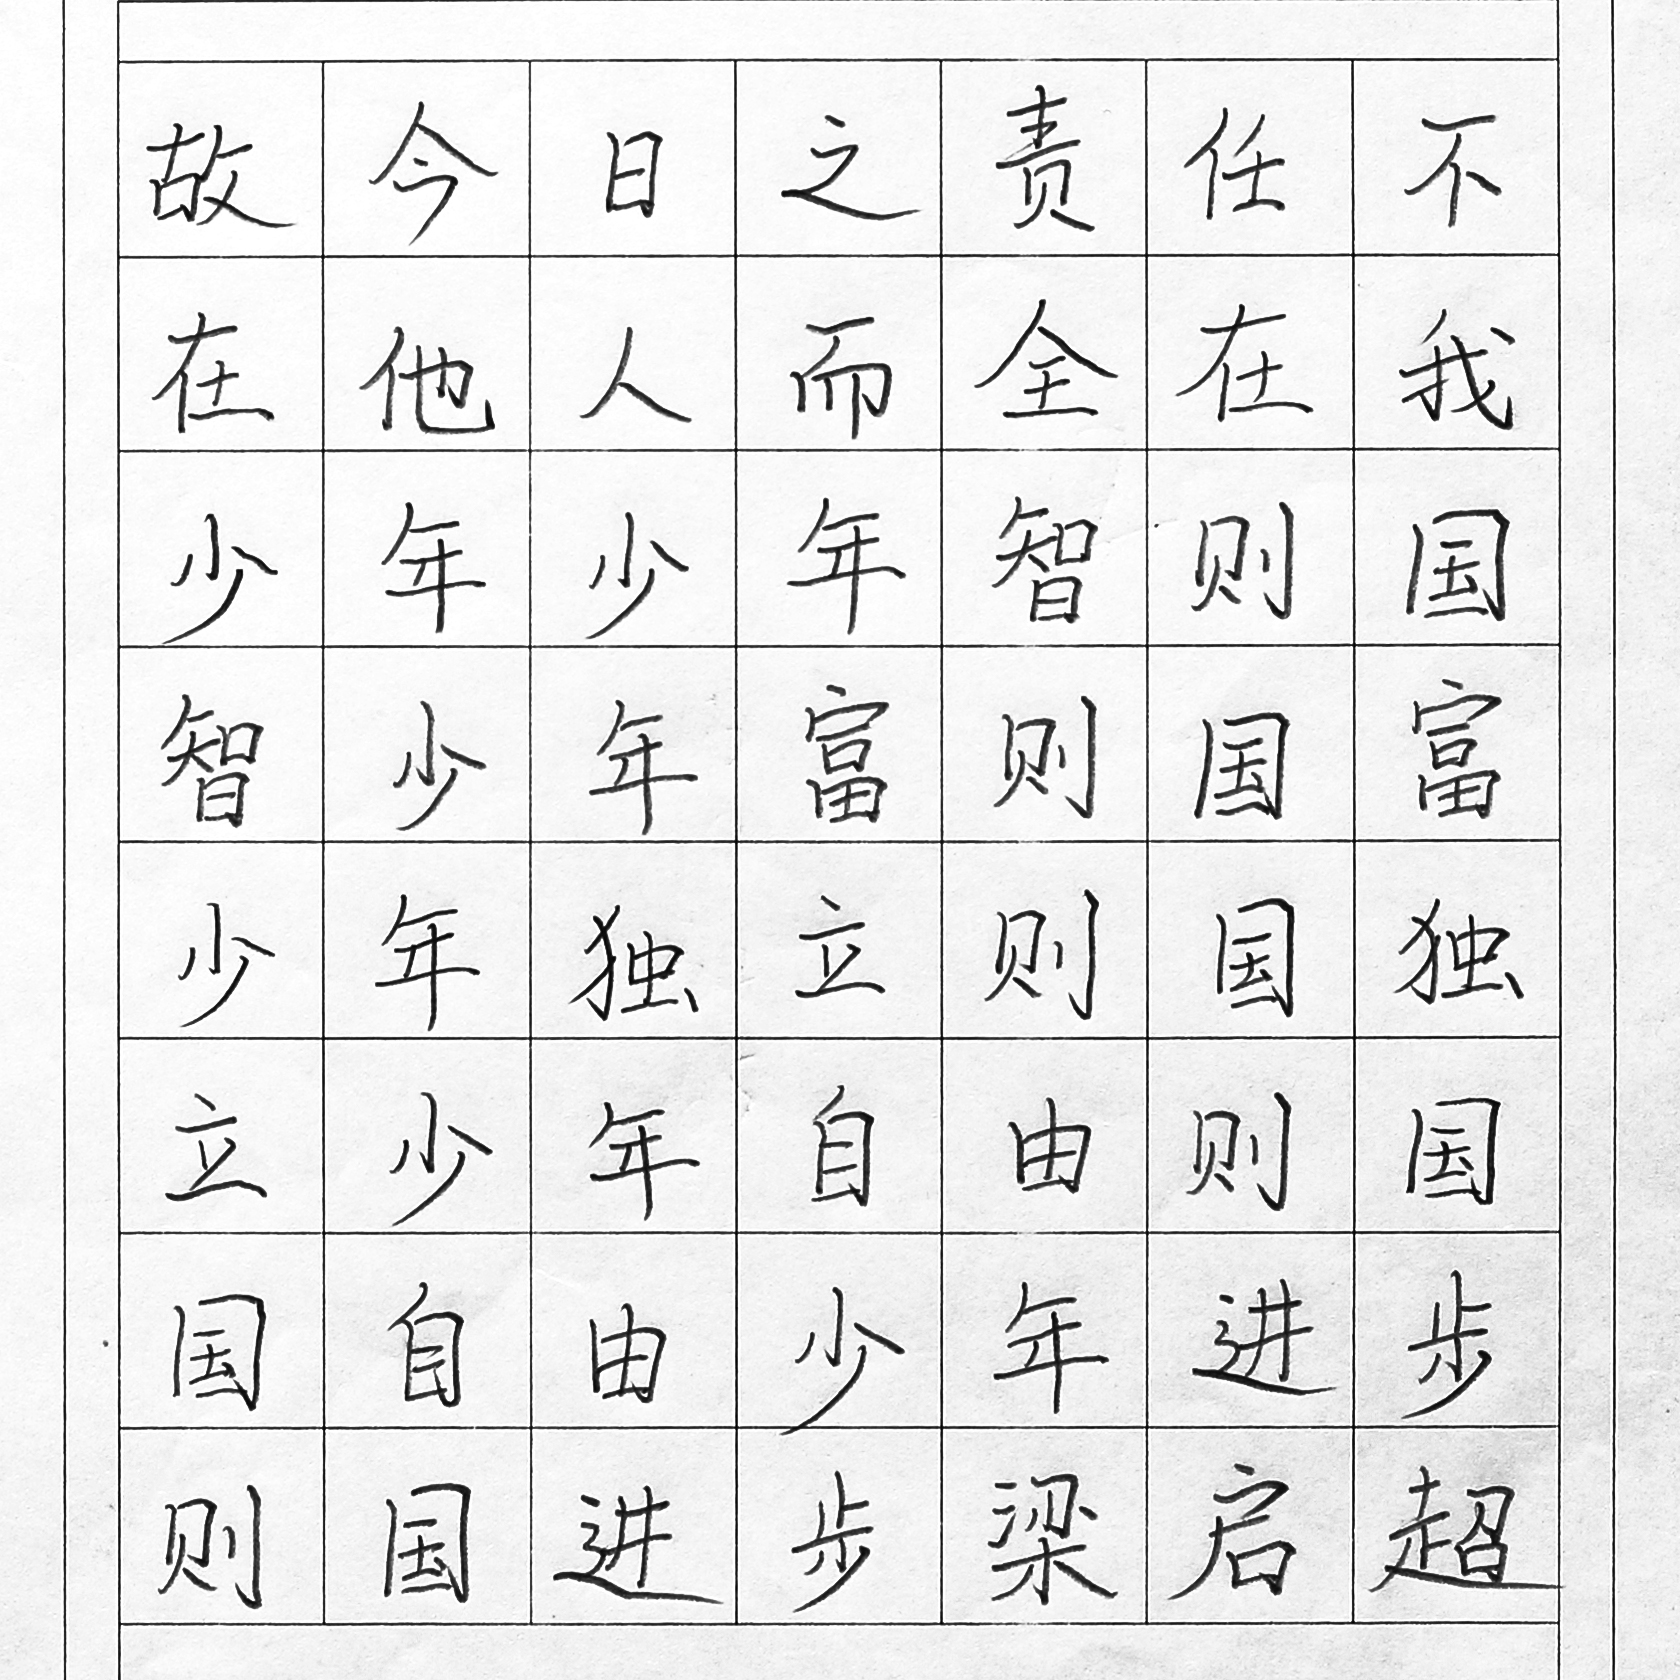 故今日之责任不
在他人而全在我
少年少年智则国
智少年富则国富
少年独立则国独
立少年自由则国
国自由少年进步
则国进步梁启超